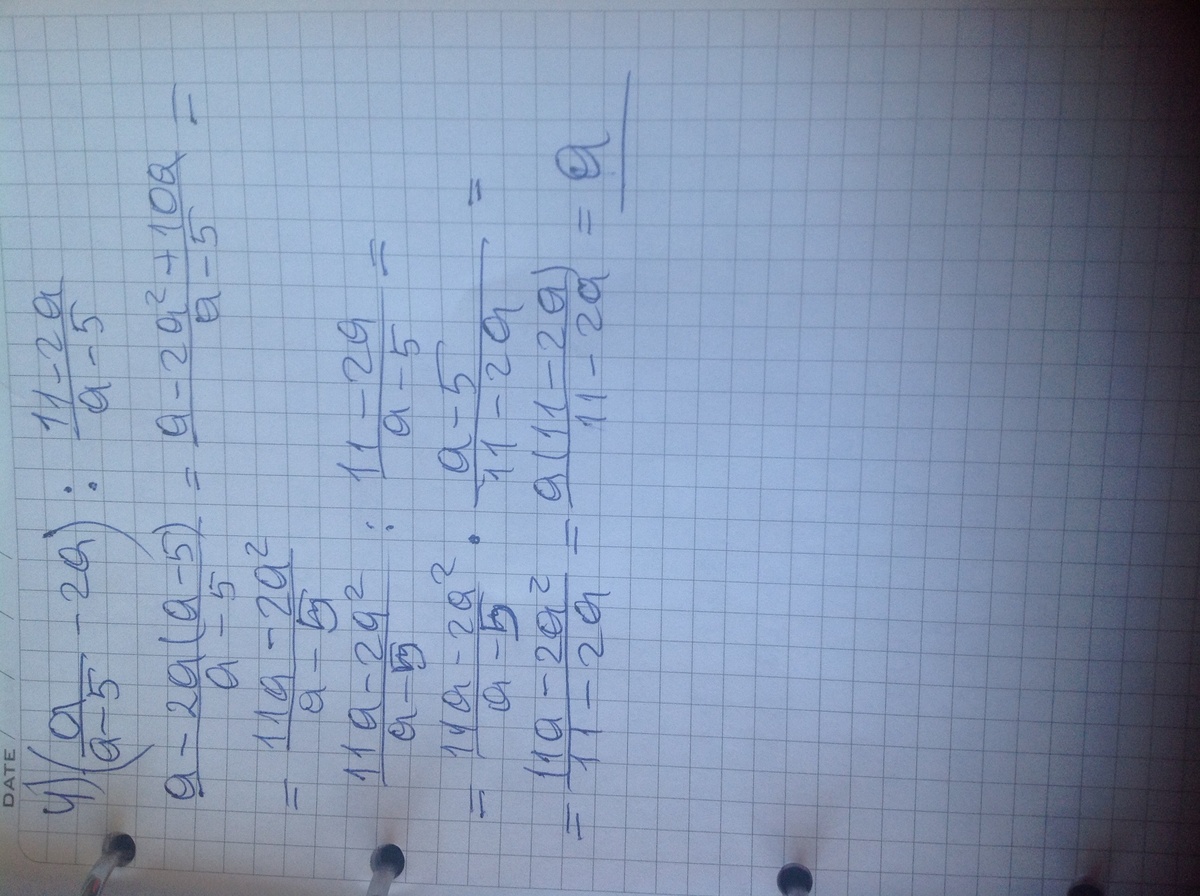 DATE / / /
4) (a/(a-5) - 2a) : (11-2a)/(a-5)
(a-2a(a-5))/(a-5) = (a-2a²+10a)/(a-5) =
= (11a-2a²)/(a-5)
(11a-2a²)/(a-5) : (11-2a)/(a-5) =
= (11a-2a²)/(a-5) · (a-5)/(11-2a) =
= (11a-2a²)/(11-2a) = a(11-2a)/(11-2a) = a